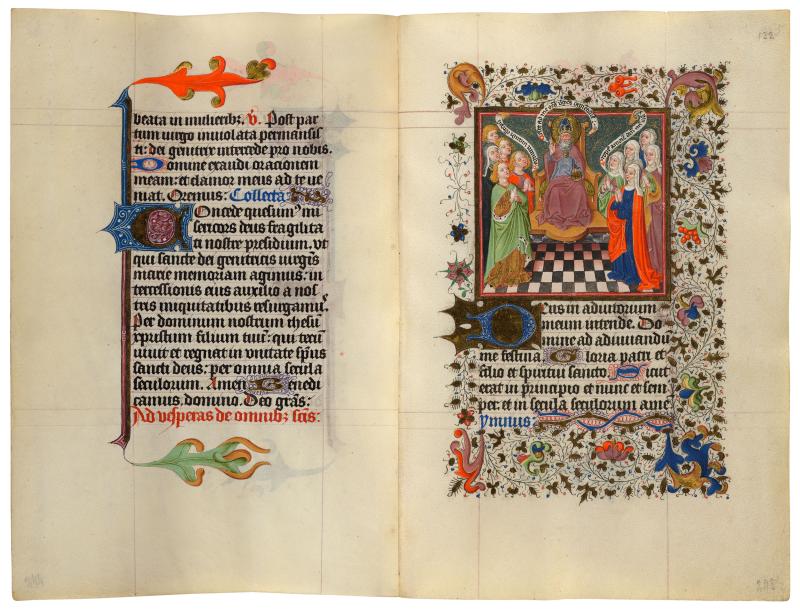 beata in mulieribꝫ. ℣. Post par
tum uirgo inuiolata permansis
ti: dei genitrix intercede pro nobis.
Domine exaudi orationem
meam: et clamor meus ad te ue
niat. Oremus: Collecta
Concede quesumꝰ mi
sericors deus fragilita
ti nostre presidium. vt
qui sancte dei genitricis uirgis
marie memoriam agimus: in
tercessionis eius auxilio a nos
tris iniquitatibus resurgamꝰ.
Per dominum nostrum ihesū
xpistum filium tuū: qui tecū
uiuit et regnat in vnitate spūs
sancti deus: per omnia secula
seculorum. Amen. Benedi
camus, domino. Deo grās:
Ad vesperas de omnibꝫ scīs:
122
Deus in adiutorium
meum intende. Do
mine ad adiuuandū
me festina. Gloria patri et
filio et spiritui sancto. Sicut
erat in principio et nunc et sem
per: et in secula seculorum amē
ymnus: